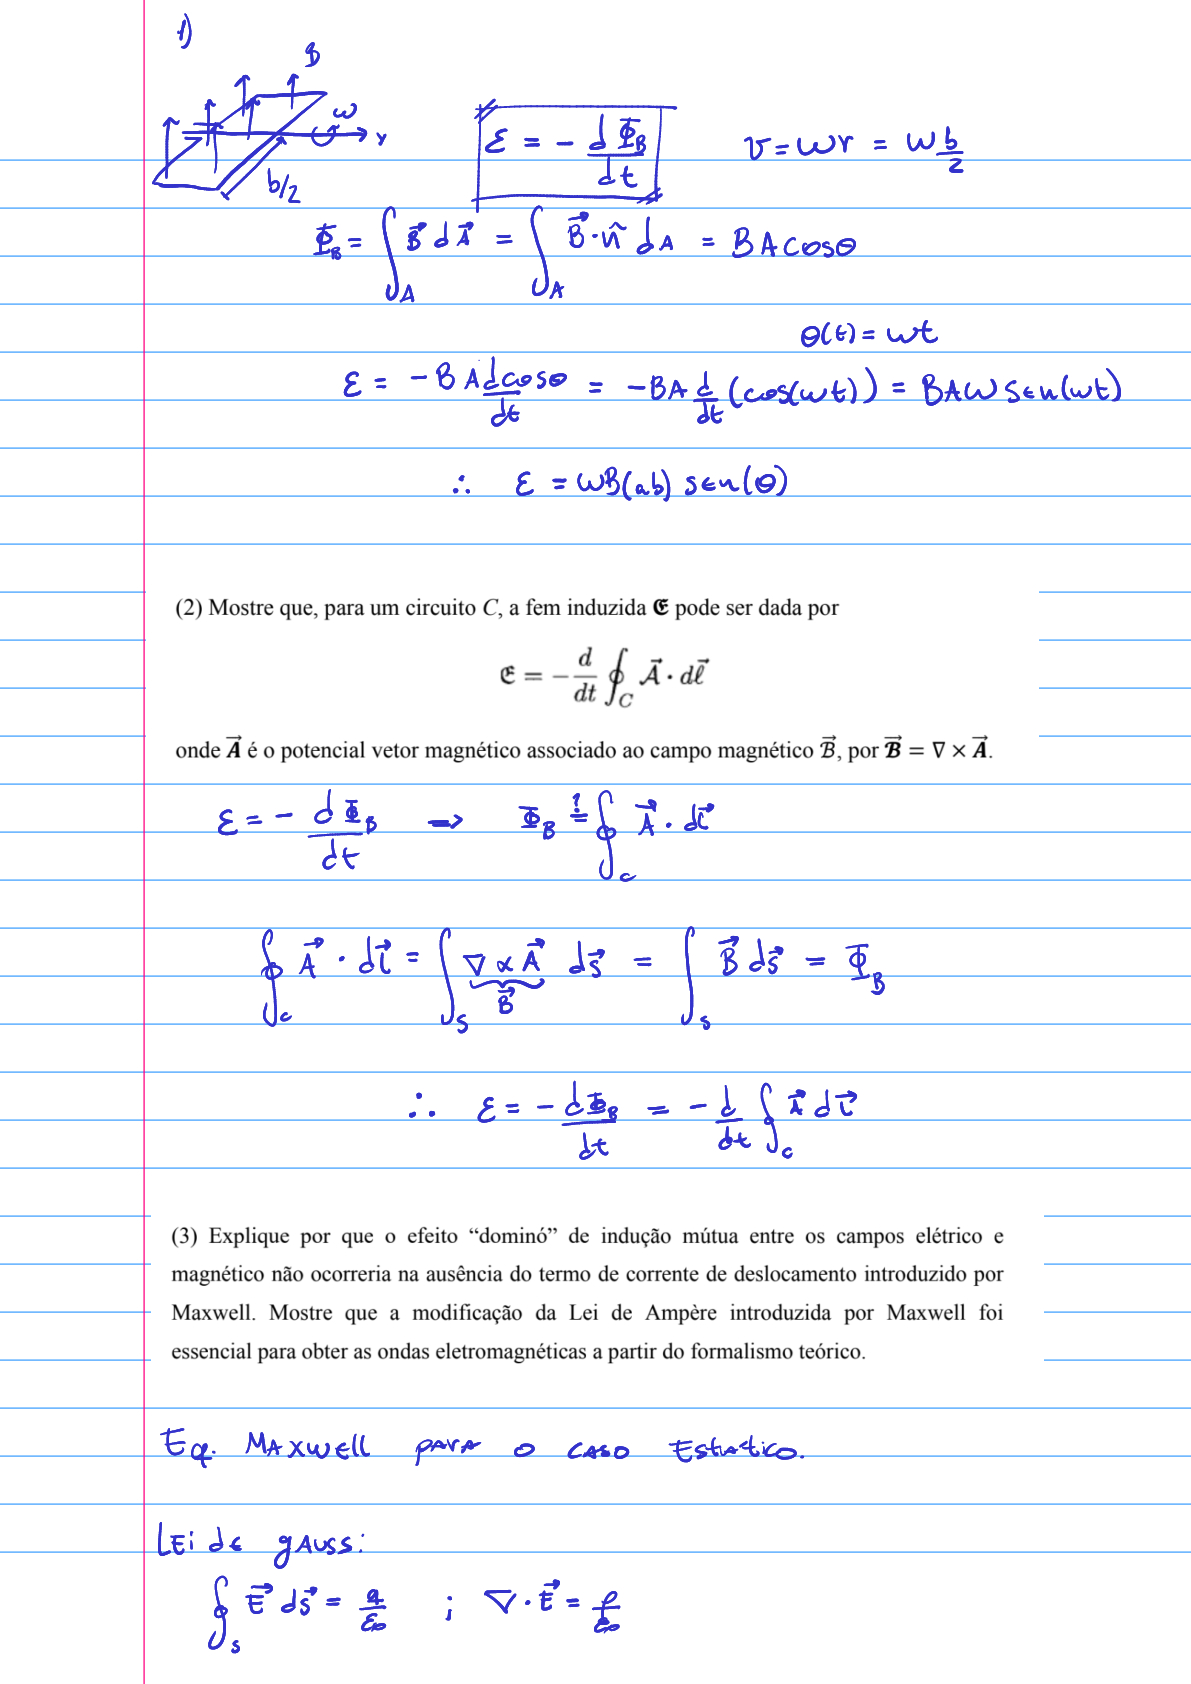 1)
B
ω
x
b/2
ε = - dΦ_B/dt
v = ωr = ω b/2
Φ_B = ∫_A B⃗ dA⃗ = ∫_A B⃗ · n̂ dA = BA cosθ
θ(t) = ωt
ε = -BA dcosθ/dt = -BA d/dt (cos(ωt)) = BAω sen(ωt)
∴ ε = ωB(ab) sen(θ)
(2) Mostre que, para um circuito C, a fem induzida 𝕰 pode ser dada por
𝕰 = - d/dt ∮_C A⃗ · dℓ⃗
onde A⃗ é o potencial vetor magnético associado ao campo magnético B⃗, por B⃗ = ∇ × A⃗.
ε = - dΦ_B/dt → Φ_B ≟ ∮_c A⃗ · dl⃗
∮_c A⃗ · dl⃗ = ∫_S ∇ × A⃗ ds⃗ = ∫_s B⃗ ds⃗ = Φ_B
B⃗
∴ ε = - dΦ_B/dt = - d/dt ∮_c A⃗ dl⃗
(3) Explique por que o efeito “dominó” de indução mútua entre os campos elétrico e
magnético não ocorreria na ausência do termo de corrente de deslocamento introduzido por
Maxwell. Mostre que a modificação da Lei de Ampère introduzida por Maxwell foi
essencial para obter as ondas eletromagnéticas a partir do formalismo teórico.
Eq. Maxwell para o caso Estático.
Lei de gauss:
∮_s E⃗ ds⃗ = q/ε₀ ; ∇ · E⃗ = ρ/ε₀